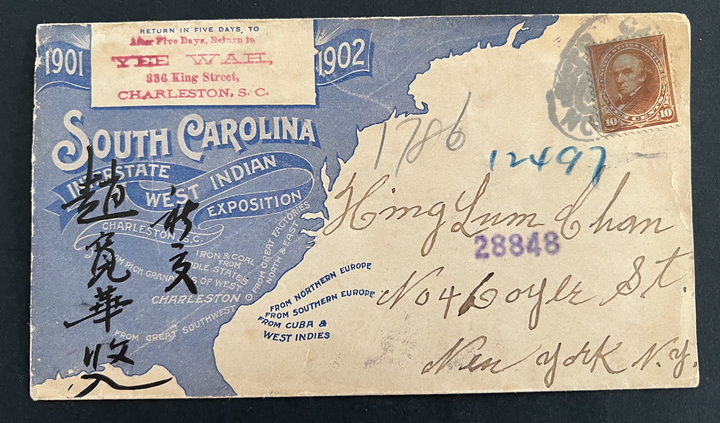 RETURN IN FIVE DAYS, TO
After Five Days, Return to
YEE WAH,
336 King Street,
CHARLESTON, S. C.
1901
1902
SOUTH CAROLINA
INTERSTATE
WEST INDIAN
EXPOSITION
CHARLESTON, S.C.
IRON & COAL
FROM
STATES
FROM RICH
OF WEST
FROM GREAT FACTORIES
NORTH & EAST
CHARLESTON
FROM GREAT SOUTHWEST
FROM NORTHERN EUROPE
FROM SOUTHERN EUROPE
FROM CUBA &
WEST INDIES
交
趙寬華收
10
10
1786
12497
Hing Lum Chan
28848
No 4 Doyer St.
New York N.Y.